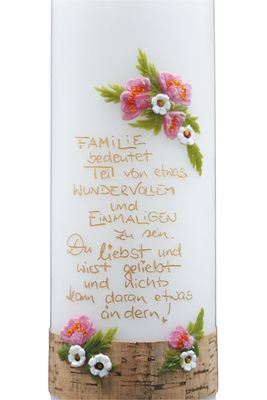 FAMiLiE
bedeutet
Teil von etwas
WUNDERVOLLEM
und
EiNMALiGEN
zu sein.
Du liebst und
wirst geliebt
und nichts
kann daran etwas
ändern!